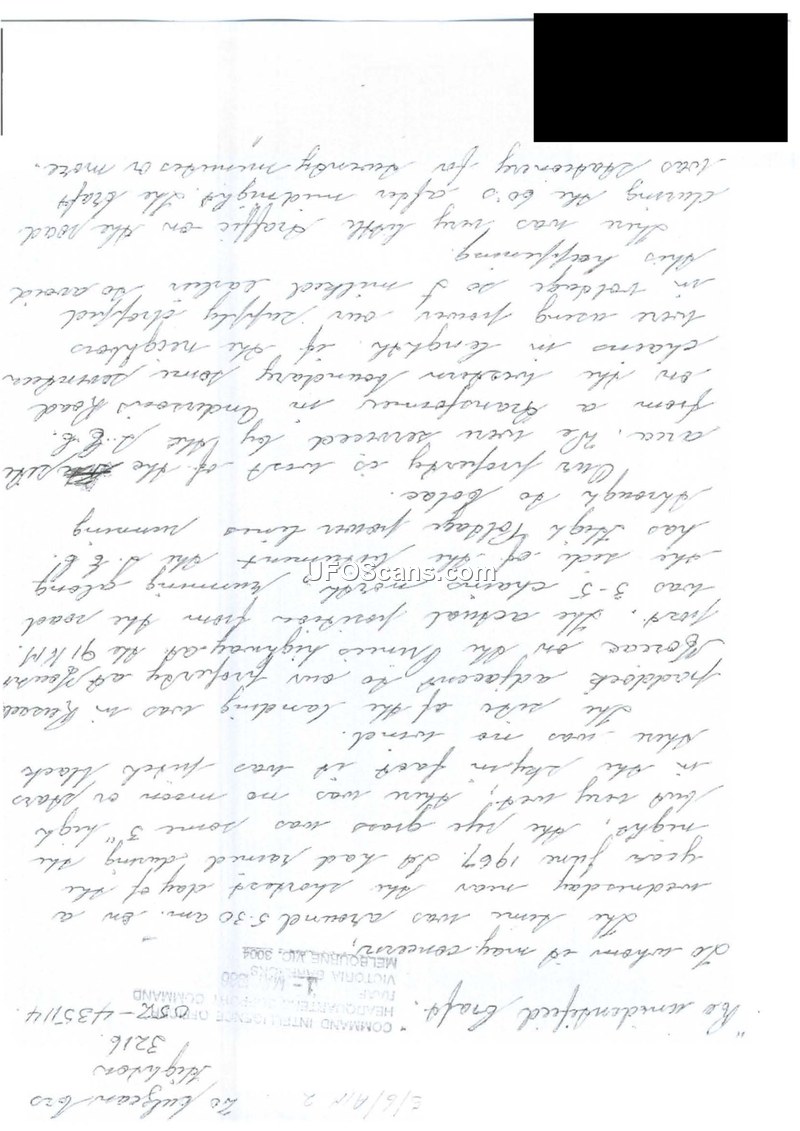 20 Culzean Crs
Highton
3216.
052-435114
COMMAND INTELLIGENCE OFFICER
HEADQUARTERS SUPPORT COMMAND
RAAF
VICTORIA BARRACKS
MELBOURNE VIC, 3004
"Re unidentified Craft."
To whom it may concern,
The time was around 5.30 am. on a
wednesday near the shortest day of the
year June 1967. It had rained during the
night, the rye grass was some 3" high
but very wet, there was no moon or stars
in the sky, in fact it was pitch black
there was no wind.
The site of the landing was in
paddock adjacent to our property at
Moreac on the Princes highway at the 91 K.M.
post. The actual position from the road
was 3-5 chains north, running along
the side of the bitument the S.E.C.
has High Voldage power lines running
through to Colac.
Our property is west of the site
area. We were serviced by the S.E.C.
from a transformer in Anderson's Road
on the western boundary some seventeen
chains in length. if the neighbors
were using power our supply dropped
in voldage so I milked earlier to avoid
this happening.
There was very little traffic on the road
during the 60's after midnight. The Craft
was stationery for twenty minutes or more.
UFOScans.com